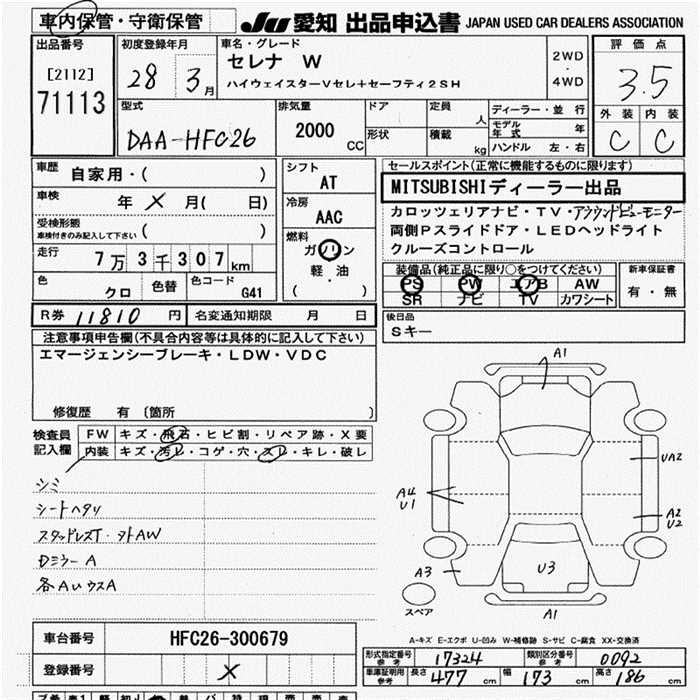 車内保管・守衛保管
JU 愛知 出品申込書 JAPAN USED CAR DEALERS ASSOCIATION
出品番号
[2112]
71113
初度登録年月
28 3月
車名・グレード
セレナ W
ハイウェイスターVセレ+セーフティ2SH
2WD
・
4WD
評価点
3.5
外装 内装
C C
型式
DAA-HFC26
排気量
2000 CC
ドア
形状
定員
積載 kg
ディーラー・並行
モデル年式 年
ハンドル 左・右
車歴
自家用・( )
車検
年 X 月( 日)
受検形態
車検付きのみ記入して下さい ( )
走行
7万3千307km
色
クロ
色替
色コード
G41
シフト
AT
冷房
AAC
燃料
ガソリン
軽・油
( )
セールスポイント(正常に機能するものに限ります)
MITSUBISHIディーラー出品
カロッツェリアナビ・TV・アラウンドビューモニター
両側Pスライドドア・LEDヘッドライト
クルーズコントロール
装備品(純正品に限り○をつけてください)
PS PW エアB AW
SR ナビ TV カワシート
新車保証書
有・無
R券 11810 円
名変通知期限 月 日
後日品
Sキー
注意事項申告欄(不具合内容等は具体的に記入して下さい)
エマージェンシーブレーキ・LDW・VDC
修復歴 有 〔箇所 〕
検査員記入欄
FW キズ・飛石・ヒビ割・リペア跡・X要
内装 キズ・汚レ・コゲ・穴・スレ・キレ・破レ
シミ
シートヘタリ
スタッドレスT・シャトAW
Dミラー A
各AUウスA
A1
UA2
A4
U1
A2
U2
A3
U3
A1
スペア
A-キズ E-エクボ U-凹み W-補修跡 S-サビ C-腐食 XX-交換済
車台番号
HFC26-300679
登録番号
X
形式指定番号 参考 17324
類別区分番号 参考 0092
車庫証明用 参考 長さ 477 cm 幅 173 cm 高さ 186 cm